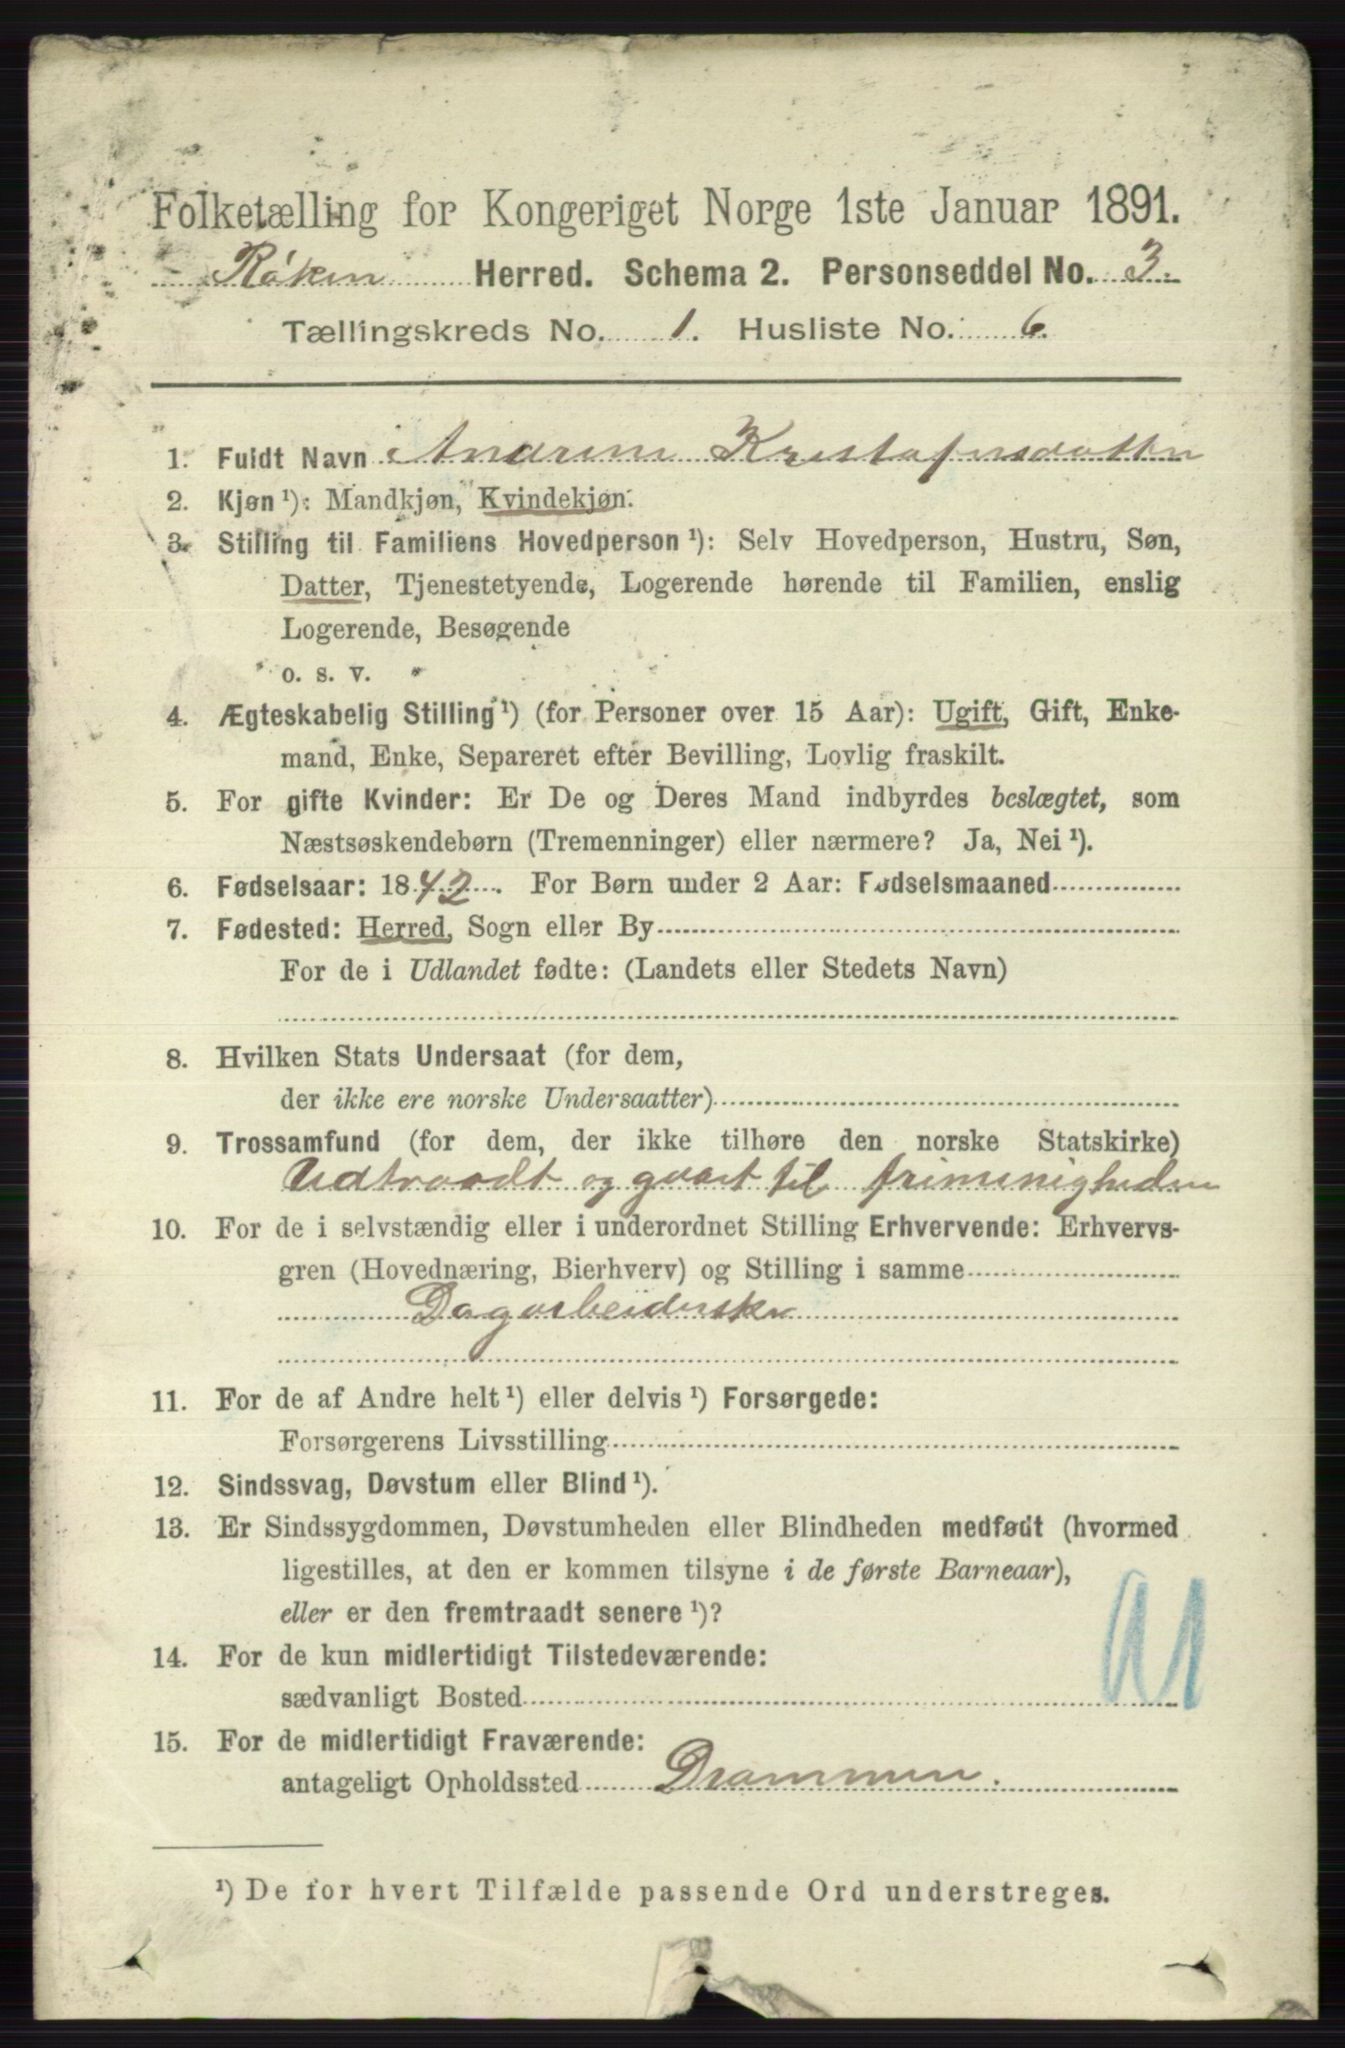 Folketælling for Kongeriget Norge 1ste Januar 1891.
Røken Herred. Schema 2. Personseddel No. 3.
Tællingskreds No. 1. Husliste No. 6.
1. Fuldt Navn Andrine Kristofersdatter
2. Kjøn ¹): Mandkjøn, Kvindekjøn.
3. Stilling til Familiens Hovedperson ¹): Selv Hovedperson, Hustru, Søn,
Datter, Tjenestetyende, Logerende hørende til Familien, enslig
Logerende, Besøgende
o. s. v.
4. Ægteskabelig Stilling ¹) (for Personer over 15 Aar): Ugift, Gift, Enke-
mand, Enke, Separeret efter Bevilling, Lovlig fraskilt.
5. For gifte Kvinder: Er De og Deres Mand indbyrdes beslægtet, som
Næstsøskendebørn (Tremenninger) eller nærmere? Ja, Nei ¹).
6. Fødselsaar: 1842. For Børn under 2 Aar: Fødselsmaaned
7. Fødested: Herred, Sogn eller By
For de i Udlandet fødte: (Landets eller Stedets Navn)
8. Hvilken Stats Undersaat (for dem,
der ikke ere norske Undersaatter)
9. Trossamfund (for dem, der ikke tilhøre den norske Statskirke)
Udtraadt og gaaet til frimenigheden
10. For de i selvstændig eller i underordnet Stilling Erhvervende: Erhvervs-
gren (Hovednæring, Bierhverv) og Stilling i samme
Dagarbeiderske
11. For de af Andre helt ¹) eller delvis ¹) Forsørgede:
Forsørgerens Livsstilling
12. Sindssvag, Døvstum eller Blind ¹).
13. Er Sindssygdommen, Døvstumheden eller Blindheden medfødt (hvormed
ligestilles, at den er kommen tilsyne i de første Barneaar),
eller er den fremtraadt senere ¹)?
14. For de kun midlertidigt Tilstedeværende:
sædvanligt Bosted
15. For de midlertidigt Fraværende:
antageligt Opholdssted Drammen.
¹) De for hvert Tilfælde passende Ord understreges.